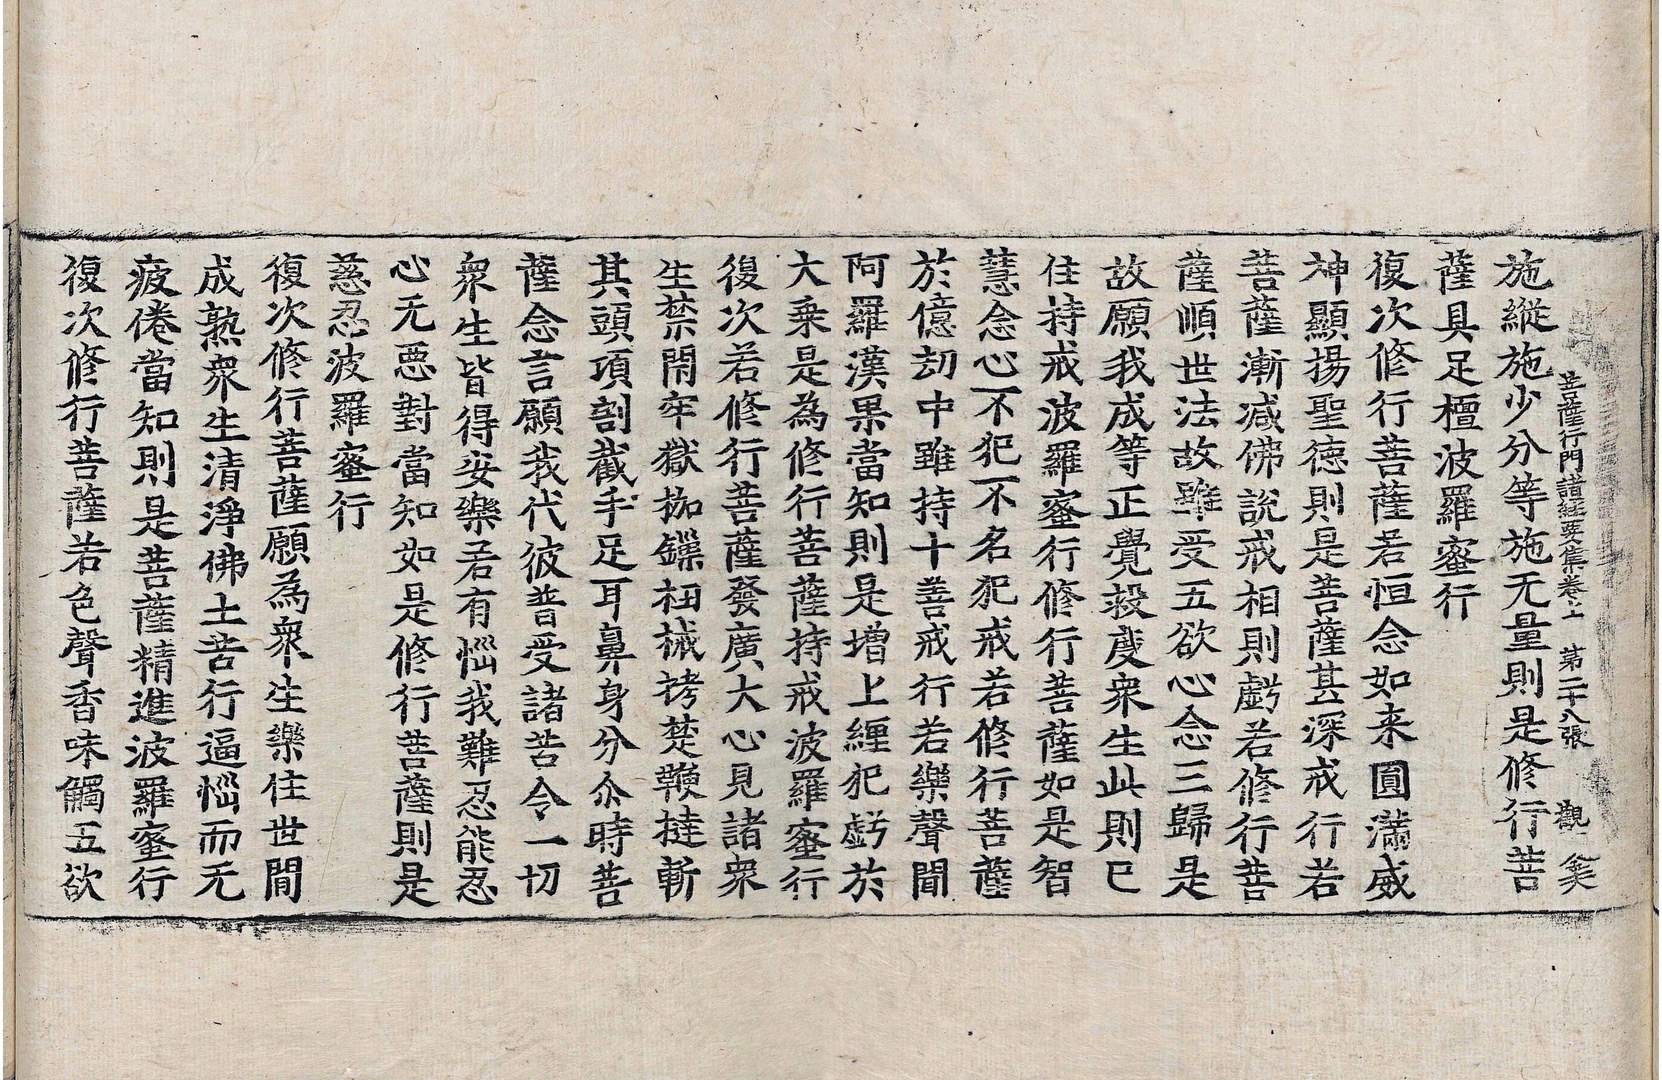 菩薩行門諸経要集卷上　第二十八張　觀
施縱施少分等施无量則是修行菩
薩具足檀波羅蜜行
復次修行菩薩若恒念如来圓滿威
神顯揚聖德則是菩薩甚深戒行若
菩薩漸減佛說戒相則虧若修行菩
薩順世法故雖受五欲心念三歸是
故願我成等正覺救度衆生此則已
住持戒波羅蜜行修行菩薩如是智
慧念心不犯不名犯戒若修行菩薩
於億劫中雖持十善戒行若樂聲聞
阿羅漢果當知則是增上纏犯虧於
大乗是為修行菩薩持戒波羅蜜行
復次若修行菩薩發廣大心見諸衆
生禁閇牢獄枷鏁杻械拷楚鞭撻斬
其頭項割截手足耳鼻身分尒時菩
薩念言願我代彼普受諸苦令一切
衆生皆得安樂若有惱我難忍能忍
心无惡對當知如是修行菩薩則是
慈忍波羅蜜行
復次修行菩薩願為衆生樂住世間
成熟衆生清淨佛土苦行逼惱而无
疲倦當知則是菩薩精進波羅蜜行
復次修行菩薩若色聲香味觸五欲